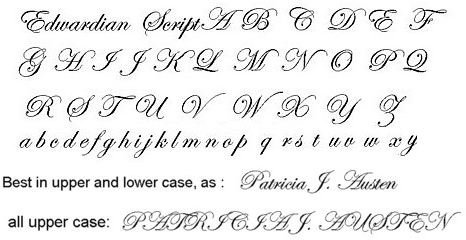 Edwardian Script A B C D E F
G H I J K L M N O P Q
R S T U V W X Y Z
a b c d e f g h i j k l m n o p q r s t u v w x y
Best in upper and lower case, as : Patricia J. Austen
all upper case: PATRICIA J. AUSTEN